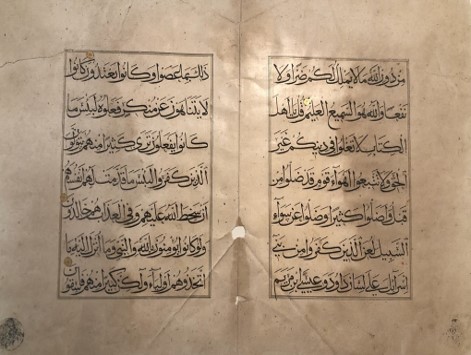 من دون الله ما لا يملك لكم ضرا ولا
نفعا والله هو السميع العليم قل يا اهل
الكتاب لا تغلوا في دينكم غير
الحق ولا تتبعوا اهواء قوم قد ضلوا من
قبل واضلوا كثيرا وضلوا عن سواء
السبيل لعن الذين كفروا من بني
اسرائيل على لسان داود وعيسى ابن مريم
ذلك بما عصوا وكانوا يعتدون كانوا
لا يتناهون عن منكر فعلوه لبئس ما
كانوا يفعلون ترى كثيرا منهم يتولون
الذين كفروا لبئس ما قدمت لهم انفسهم
ان سخط الله عليهم وفي العذاب هم خالدون
ولو كانوا يؤمنون بالله والنبي وما انزل اليه ما
اتخذوهم اولياء ولكن كثيرا منهم فاسقون